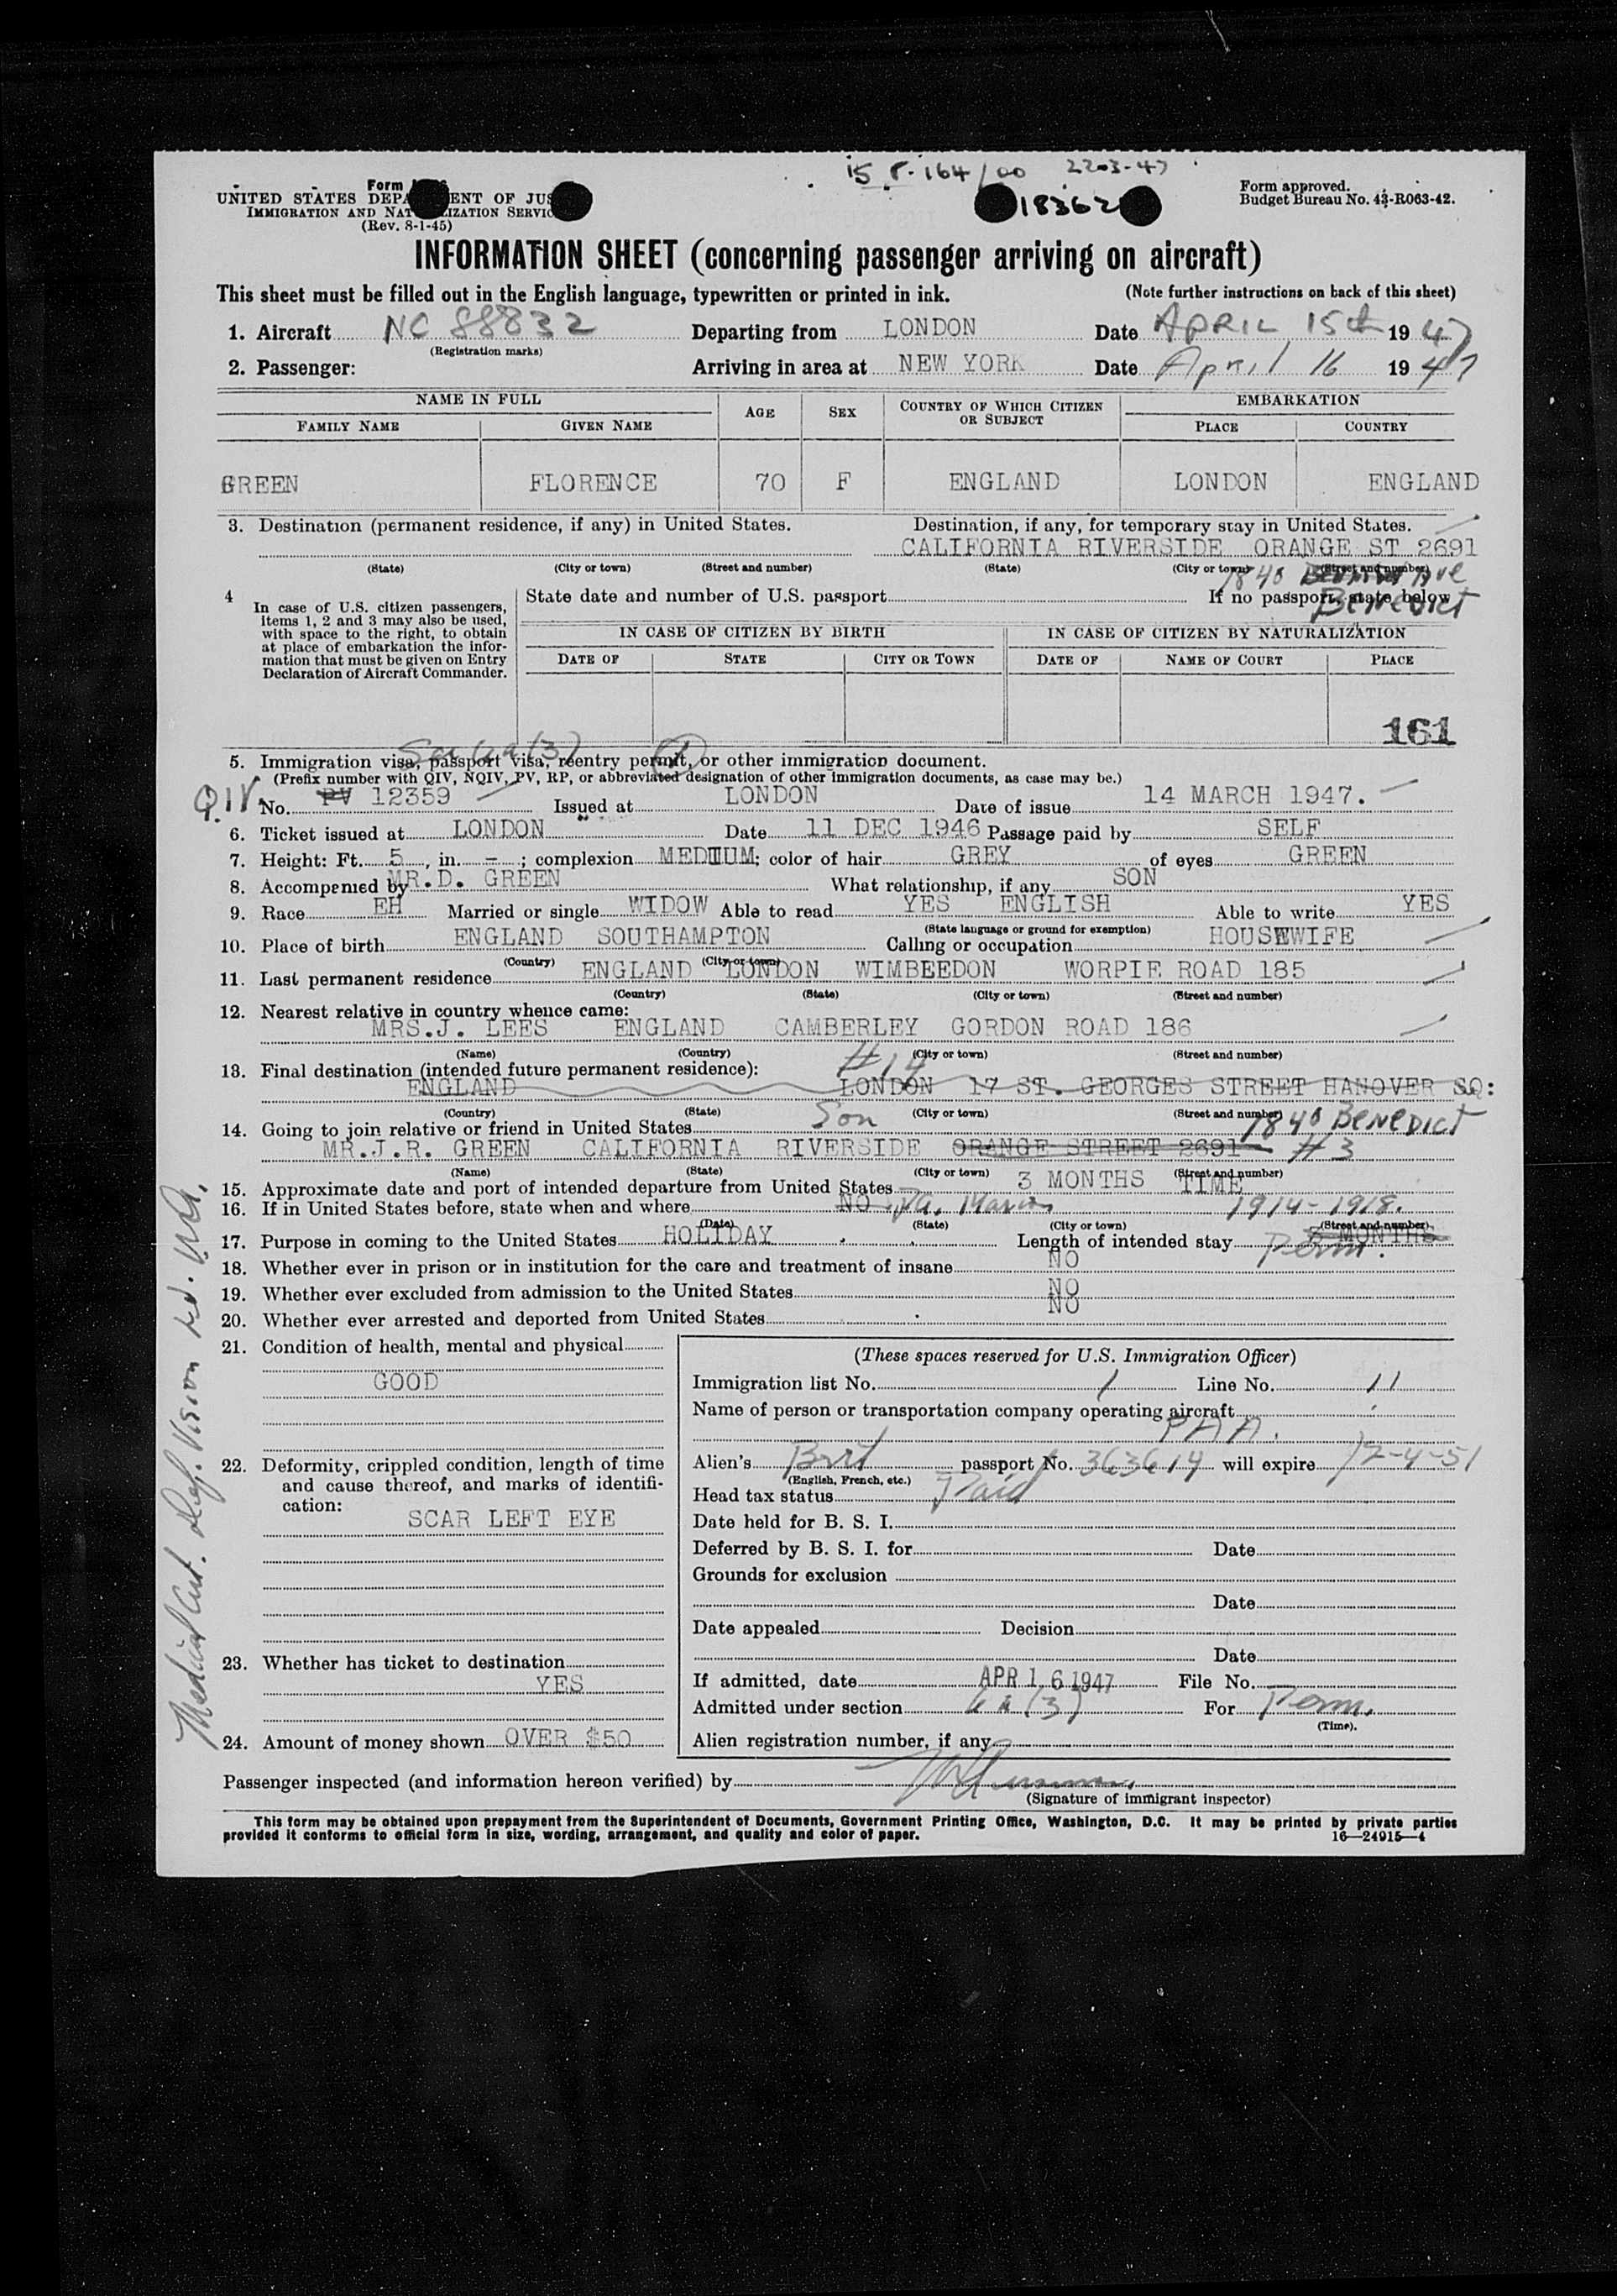 15 8-164/00 2203-47
Form
UNITED STATES DEPA ENT OF JUS
IMMIGRATION AND NAT IZATION SERVIC
(Rev. 8-1-45)
183620
Form approved.
Budget Bureau No. 43-R063-42.
INFORMATION SHEET (concerning passenger arriving on aircraft)
This sheet must be filled out in the English language, typewritten or printed in ink. (Note further instructions on back of this sheet)
1. Aircraft NC 88832 Departing from LONDON Date APRIL 15th 1947
(Registration marks)
2. Passenger: Arriving in area at NEW YORK Date April 16 1947
NAME IN FULL AGE SEX COUNTRY OF WHICH CITIZEN OR SUBJECT EMBARKATION
FAMILY NAME GIVEN NAME PLACE COUNTRY
GREEN FLORENCE 70 F ENGLAND LONDON ENGLAND
3. Destination (permanent residence, if any) in United States. Destination, if any, for temporary stay in United States.
CALIFORNIA RIVERSIDE ORANGE ST 2691
(State) (City or town) (Street and number) (State) (City or town) (Street and number)
1840 Ave
BENEDICT
4 In case of U.S. citizen passengers, items 1, 2 and 3 may also be used, with space to the right, to obtain at place of embarkation the information that must be given on Entry Declaration of Aircraft Commander.
State date and number of U.S. passport If no passport, state below
IN CASE OF CITIZEN BY BIRTH IN CASE OF CITIZEN BY NATURALIZATION
DATE OF STATE CITY OR TOWN DATE OF NAME OF COURT PLACE
161
5. Immigration visa, passport visa, reentry permit, or other immigration document.
(Prefix number with QIV, NQIV, PV, RP, or abbreviated designation of other immigration documents, as case may be.)
QIV No. PV 12359 Issued at LONDON Date of issue 14 MARCH 1947.
6. Ticket issued at LONDON Date 11 DEC 1946 Passage paid by SELF
7. Height: Ft. 5, in. - ; complexion MEDIUM; color of hair GREY of eyes GREEN
8. Accompanied by MR.D. GREEN What relationship, if any SON
9. Race EH Married or single WIDOW Able to read YES ENGLISH Able to write YES
(State language or ground for exemption)
10. Place of birth ENGLAND SOUTHAMPTON Calling or occupation HOUSEWIFE
(Country) (City or town)
11. Last permanent residence ENGLAND LONDON WIMBEEDON WORPIE ROAD 185
(Country) (State) (City or town) (Street and number)
12. Nearest relative in country whence came:
MRS.J. LEES ENGLAND CAMBERLEY GORDON ROAD 186
(Name) (Country) (City or town) (Street and number)
13. Final destination (intended future permanent residence): #14
ENGLAND LONDON 17 ST. GEORGES STREET HANOVER SQ:
(Country) (State) (City or town) (Street and number)
14. Going to join relative or friend in United States Son 1840 BENEDICT
MR.J.R. GREEN CALIFORNIA RIVERSIDE ORANGE STREET 2691 #3
(Name) (State) (City or town) (Street and number)
15. Approximate date and port of intended departure from United States 3 MONTHS TIME
16. If in United States before, state when and where NO Pa. 1914-1918.
(Date) (State) (City or town) (Street and number)
17. Purpose in coming to the United States HOLIDAY Length of intended stay 3 MONTHS Perm.
18. Whether ever in prison or in institution for the care and treatment of insane NO
19. Whether ever excluded from admission to the United States NO
20. Whether ever arrested and deported from United States NO
21. Condition of health, mental and physical
GOOD
22. Deformity, crippled condition, length of time and cause thereof, and marks of identification:
SCAR LEFT EYE
23. Whether has ticket to destination
YES
24. Amount of money shown OVER $50
Medical Cert. Def. Vision
(These spaces reserved for U.S. Immigration Officer)
Immigration list No. 1 Line No. 11
Name of person or transportation company operating aircraft
PAA.
Alien's Brit passport No. 363614 will expire 12-4-51
(English, French, etc.)
Head tax status Paid
Date held for B. S. I.
Deferred by B. S. I. for Date
Grounds for exclusion
Date
Date appealed Decision
Date
If admitted, date APR 16 1947 File No.
Admitted under section 6a(3) For Perm.
(Time).
Alien registration number, if any
Passenger inspected (and information hereon verified) by
(Signature of immigrant inspector)
This form may be obtained upon prepayment from the Superintendent of Documents, Government Printing Office, Washington, D.C. It may be printed by private parties
provided it conforms to official form in size, wording, arrangement, and quality and color of paper. 16—24915-4